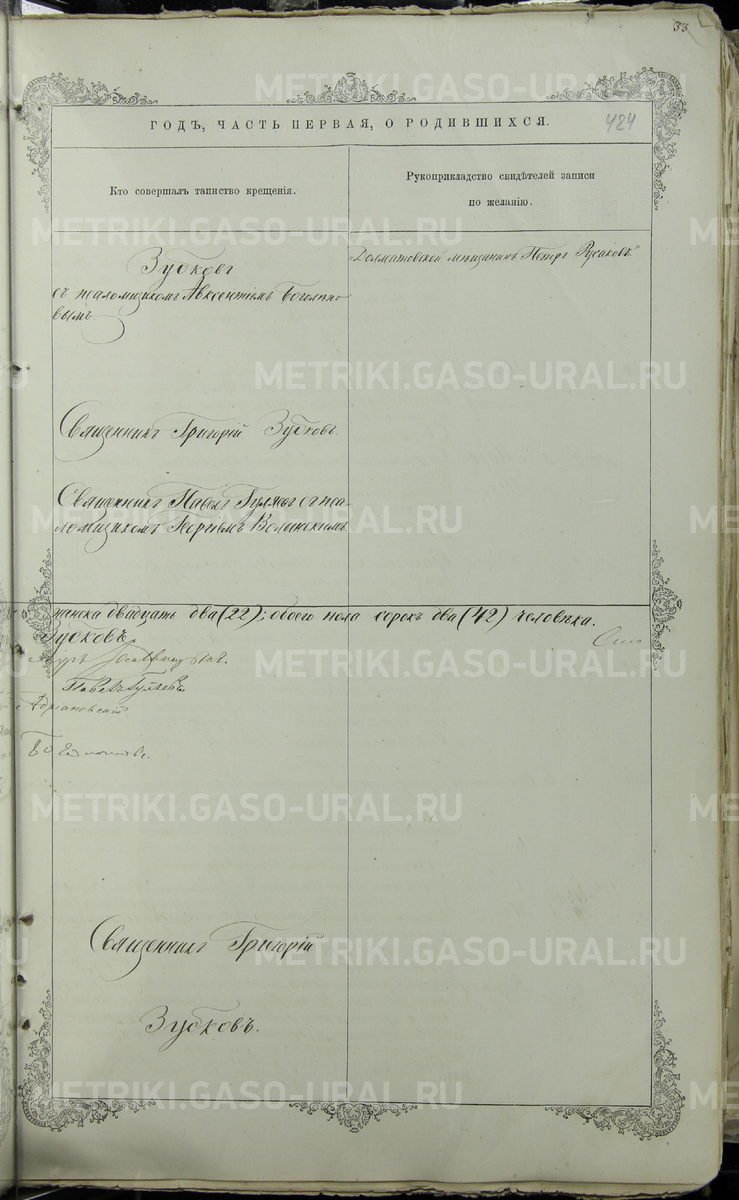 33
ГОДЪ, ЧАСТЬ ПЕРВАЯ, О РОДИВШИХСЯ.
424
Кто совершалъ таинство крещенія.
Рукоприкладство свидѣтелей записи
по желанію.
Зубковъ
Долматовской мѣщанинъ Петръ Русаковъ
съ псаломщикомъ Авксентіемъ
вымъ.
Священникъ Григорій Зубковъ.
Священникъ Павелъ Гуляевъ съ пса-
ломщикомъ
женска двадцать два (22); обоего пола сорокъ два (42) человѣка.
Зубковъ
Павелъ Гуляевъ
Священникъ Григорій
Зубковъ.
METRIKI.GASO-URAL.RU